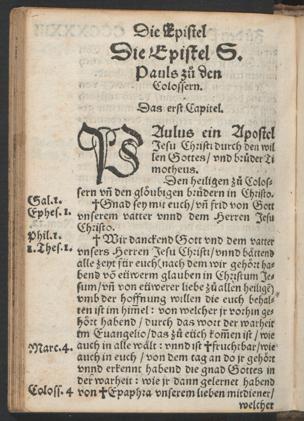 Die Epistel
Die Epistel S.
Pauls zů den
Colossern.
Das erst Capitel.
PAulus ein Apostel
Jesu Christi durch den wil
len Gottes / vnd brůder Ti
motheus.
Den heiligen zů Colos-
sern vñ den glöubigen brüdern in Christo.
Gal.1. †Gnad sey mit euch / vñ frid von Gott
Ephes.1. vnserem vatter vnnd dem Herren Jesu
Christo.
Phil.1. †Wir danckend Gott vnd dem vatter
1.Thes.1. vnsers Herren Jesu Christi / vnnd bättend
alle zeyt für euch / nach dem wir gehört ha-
bend vō eüwerm glauben in Christum Je-
sum / vñ von eüwerer liebe zů allen heiligē /
vmb der hoffnung willen die euch behal-
ten ist im himel : von welcher jr vorhin ge-
hört habend / durch das wort der warheit
im Euangelio / das zů eüch kom̃en ist / wie
Marc.4. auch in alle wält : vnnd ist †fruchtbar / wie
auch in euch / von dem tag an do jr gehört
vnnd erkennt habend die gnad Gottes in
der warheit : wie jr dann gelernet habend
Coloss.4 von †Epaphra vnserem lieben mitdiener /
welcher